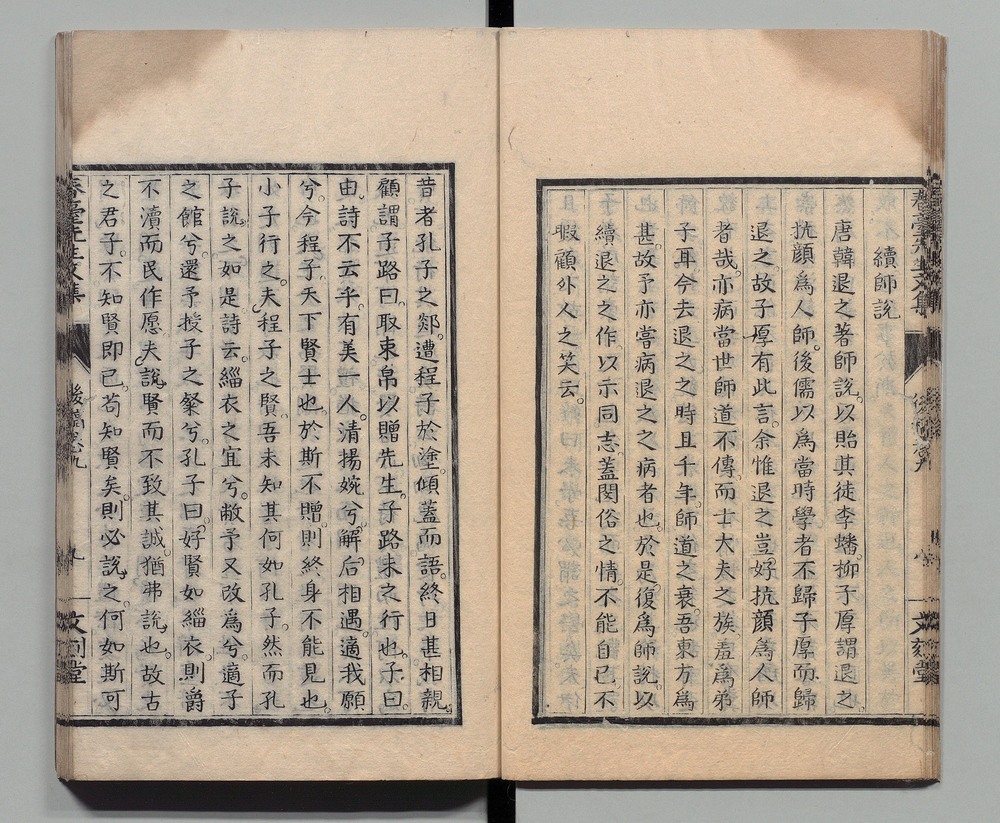 續師說
唐韓退之著師說。以貽其徒李蟠。柳子厚謂退之
抗顏爲人師。後儒以爲當時學者不歸子厚而歸
退之。故子厚有此言。余惟退之豈好抗顏爲人師
者哉。亦病當世師道不傳。而士大夫之族羞爲弟
子耳。今去退之之時且千年。師道之衰。吾東方爲
甚。故予亦嘗病退之之病者也。於是。復爲師說。以
續退之之作。以示同志。蓋閔俗之情。不能自已。不
暇顧外人之笑云。
昔者孔子之郯。遭程子於塗。傾蓋而語。終日甚相親。
顧謂子路曰。取束帛以贈先生。子路未之行也。子曰。
由。詩不云乎。有美一人。清揚婉兮。解后相遇。適我願
兮。今程子。天下賢士也。於斯不贈。則終身不能見也。
小子行之。夫程子之賢。吾未知其何如孔子。然而孔
子說之如是。詩云。緇衣之宜兮。敝予又改爲兮。適子
之館兮。還予授子之粲兮。孔子曰。好賢如緇衣。則爵
不瀆而民作愿。夫說賢而不致其誠。猶弗說也。故古
之君子。不知賢即已。苟知賢矣。則必說之。何如斯可
春臺先生文集
後稿卷九
九